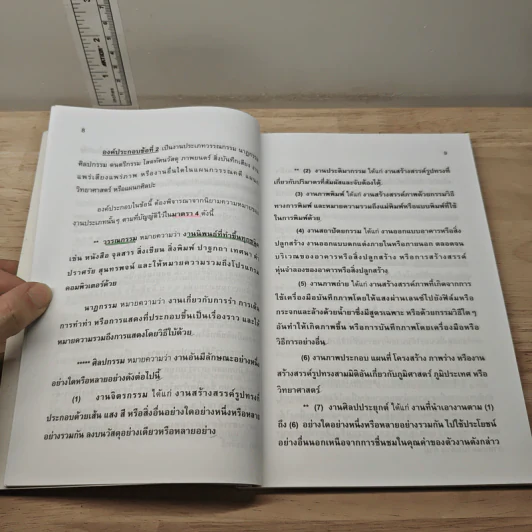 8
องค์ประกอบข้อที่ 2 เป็นงานประเภทวรรณกรรม นาฏกรรม
ศิลปกรรม ดนตรีกรรม โสตทัศนวัสดุ ภาพยนตร์ สิ่งบันทึกเสียง งาน
แพร่เสียงแพร่ภาพ หรืองานอื่นใดในแผนกวรรณคดี แผนก
วิทยาศาสตร์ หรือแผนกศิลปะ
องค์ประกอบในข้อนี้ ต้องพิจารณาจากนิยามความหมายของ
งานประเภทนั้นๆ ตามที่บัญญัติไว้ในมาตรา 4 ดังนี้
** วรรณกรรม หมายความว่า งานนิพนธ์ที่ทำขึ้นทุกชนิด
เช่น หนังสือ จุลสาร สิ่งเขียน สิ่งพิมพ์ ปาฐกถา เทศนา
ปราศรัย สุนทรพจน์ และให้หมายความรวมถึงโปรแกรม
คอมพิวเตอร์ด้วย
นาฏกรรม หมายความว่า งานเกี่ยวกับการรำ การเต้น
การทำท่า หรือการแสดงที่ประกอบขึ้นเป็นเรื่องราว และให้
หมายความรวมถึงการแสดงโดยวิธีใบ้ด้วย
***** ศิลปกรรม หมายความว่า งานอันมีลักษณะอย่างหนึ่ง
อย่างใดหรือหลายอย่างดังต่อไปนี้
(1) งานจิตรกรรม ได้แก่ งานสร้างสรรค์รูปทรงที่
ประกอบด้วยเส้น แสง สี หรือสิ่งอื่นอย่างใดอย่างหนึ่งหรือหลาย
อย่างรวมกัน ลงบนวัสดุอย่างเดียวหรือหลายอย่าง
9
** (2) งานประติมากรรม ได้แก่ งานสร้างสรรค์รูปทรงที่
เกี่ยวกับปริมาตรที่สัมผัสและจับต้องได้
(3) งานภาพพิมพ์ ได้แก่ งานสร้างสรรค์ภาพด้วยกรรมวิธี
ทางการพิมพ์ และหมายความรวมถึงแม่พิมพ์หรือแบบพิมพ์ที่ใช้
ในการพิมพ์ด้วย
(4) งานสถาปัตยกรรม ได้แก่ งานออกแบบอาคารหรือสิ่ง
ปลูกสร้าง งานออกแบบตกแต่งภายในหรือภายนอก ตลอดจน
บริเวณของอาคารหรือสิ่งปลูกสร้าง หรือการสร้างสรรค์
หุ่นจำลองของอาคารหรือสิ่งปลูกสร้าง
(5) งานภาพถ่าย ได้แก่ งานสร้างสรรค์ภาพที่เกิดจากการ
ใช้เครื่องมือบันทึกภาพโดยให้แสงผ่านเลนซ์ไปยังฟิล์มหรือ
กระจกและล้างด้วยน้ำยาซึ่งมีสูตรเฉพาะ หรือด้วยกรรมวิธีใด ๆ
อันทำให้เกิดภาพขึ้น หรือการบันทึกภาพโดยเครื่องมือหรือ
วิธีการอย่างอื่น
(6) งานภาพประกอบ แผนที่ โครงสร้าง ภาพร่าง หรืองาน
สร้างสรรค์รูปทรงสามมิติอันเกี่ยวกับภูมิศาสตร์ ภูมิประเทศ หรือ
วิทยาศาสตร์
** (7) งานศิลปประยุกต์ ได้แก่ งานที่นำเอางานตาม (1)
ถึง (6) อย่างใดอย่างหนึ่งหรือหลายอย่างรวมกัน ไปใช้ประโยชน์
อย่างอื่นนอกเหนือจากการชื่นชมในคุณค่าของตัวงานดังกล่าว